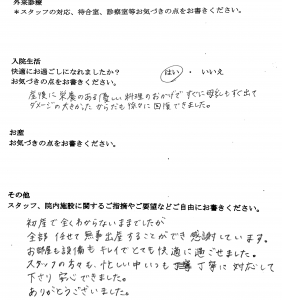 外来診療
*スタッフの対応、待合室、診察室等お気づきの点をお書きください。
入院生活
快適にお過ごしになれましたか? はい ・ いいえ
お気づきの点をお書きください。
産後に栄養のある優しい料理のおかげですぐに母乳もすぐ出て
ダメージの大きかったからだも徐々に回復できました。
お産
お気づきの点をお書きください。
その他
スタッフ、院内施設に関するご指摘やご要望などご自由にお書きください。
初産で全くわからないままでしたが
全部任せて無事出産することができ感謝しています。
お部屋も設備もキレイでとても快適に過ごせました。
スタッフの方々も、忙しい中いつも丁寧に対応して
下さり安心できました。
ありがとうございました。